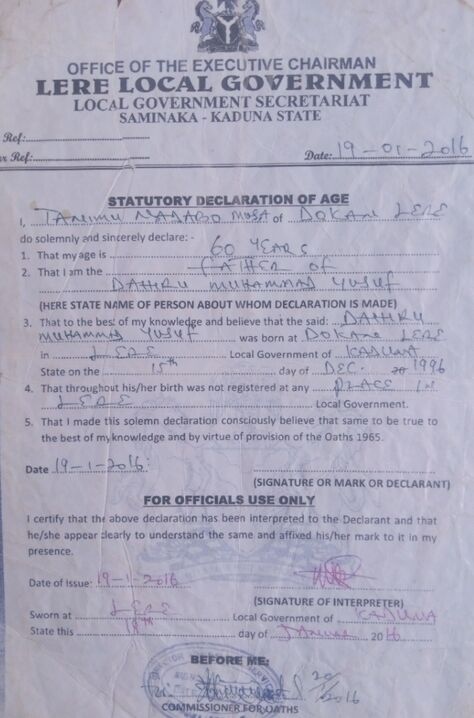 OFFICE OF THE EXECUTIVE CHAIRMAN
LERE LOCAL GOVERNMENT
LOCAL GOVERNMENT SECRETARIAT
SAMINAKA - KADUNA STATE
Ref:
r Ref: Date: 19-01-2016
STATUTORY DECLARATION OF AGE
I, TANIMU MADABO MUSA of DOKAN LERE
do solemnly and sincerely declare: -
1. That my age is 60 YEARS
2. That I am the FATHER OF
DAHIRU MUHAMMAD YUSUF
(HERE STATE NAME OF PERSON ABOUT WHOM DECLARATION IS MADE)
3. That to the best of my knowledge and believe that the said: DAHIRU
MUHAMMAD YUSUF was born at DOKAN LERE
in LERE Local Government of KADUNA
State on the 15th day of DEC. 20 1996
4. That throughout his/her birth was not registered at any PLACE IN
LERE Local Government.
5. That I made this solemn declaration consciously believe that same to be true to
the best of my knowledge and by virtue of provision of the Oaths 1965.
Date 19-1-2016
(SIGNATURE OR MARK OR DECLARANT)
FOR OFFICIALS USE ONLY
I certify that the above declaration has been interpreted to the Declarant and that
he/she appear clearly to understand the same and affixed his/her mark to it in my
presence.
Date of Issue: 19-1-2016
(SIGNATURE OF INTERPRETER)
Sworn at LERE Local Government of KADUNA
State this 19th day of JANUAR 2016
BEFORE ME:
20/1/2016
COMMISSIONER FOR OATHS